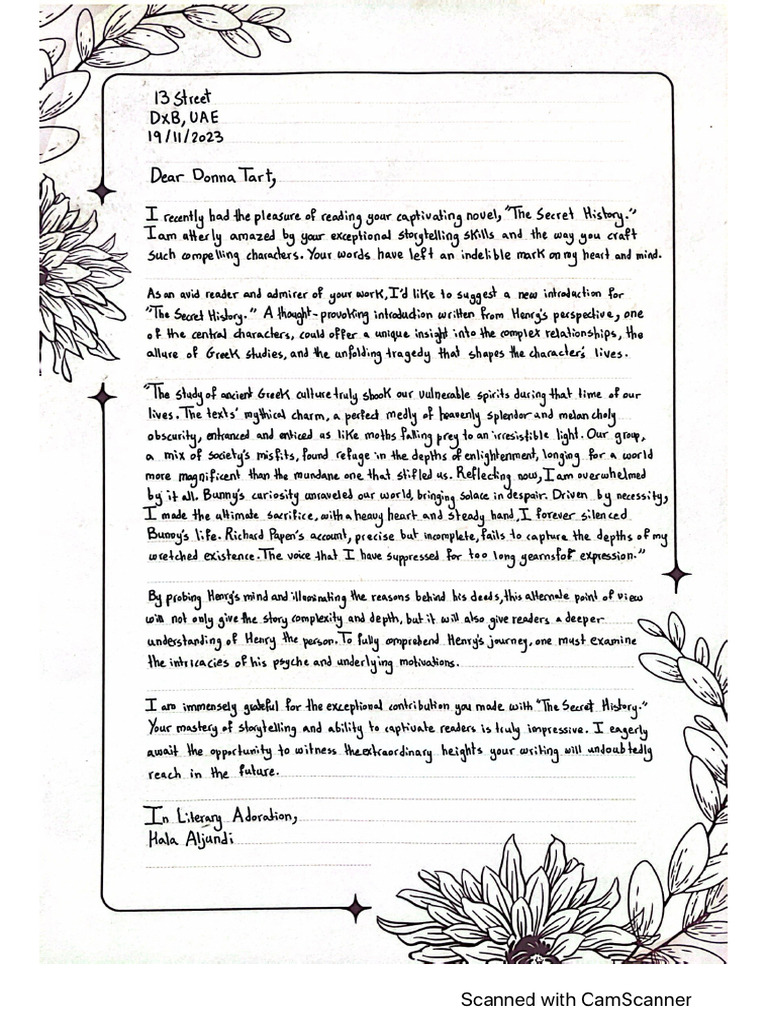 13 Street
DXB, UAE
19/11/2023
Dear Donna Tart,
I recently had the pleasure of reading your captivating novel, "The Secret History."
I am utterly amazed by your exceptional storytelling skills and the way you craft
such compelling characters. Your words have left an indelible mark on my heart and mind.
As an avid reader and admirer of your work, I'd like to suggest a new introduction for
"The Secret History." A thought-provoking introduction written from Henry's perspective, one
of the central characters, could offer a unique insight into the complex relationships, the
allure of Greek studies, and the unfolding tragedy that shapes the character's lives.
"The study of ancient Greek culture truly shook our vulnerable spirits during that time of our
lives. The texts' mythical charm, a perfect medly of heavenly splendor and melancholy
obscurity, entranced and enticed us like moths falling prey to an irresistible light. Our group,
a mix of society's misfits, found refuge in the depths of enlightenment, longing for a world
more magnificent than the mundane one that stifled us. Reflecting now, I am overwhelmed
by it all. Bunny's curiosity unraveled our world, bringing solace in despair. Driven by necessity,
I made the ultimate sacrifice, with a heavy heart and steady hand, I forever silenced
Bunny's life. Richard Papen's account, precise but incomplete, fails to capture the depths of my
wretched existence. The voice that I have suppressed for too long yearns for expression."
By probing Henry's mind and illuminating the reasons behind his deeds, this alternate point of view
will not only give the story complexity and depth, but it will also give readers a deeper
understanding of Henry the person. To fully comprehend Henry's journey, one must examine
the intricacies of his psyche and underlying motivations.
I am immensely grateful for the exceptional contribution you made with "The Secret History."
Your mastery of storytelling and ability to captivate readers is truly impressive. I eagerly
await the opportunity to witness the extraordinary heights your writing will undoubtedly
reach in the future.
In Literary Adoration,
Hala Aljundi
Scanned with CamScanner